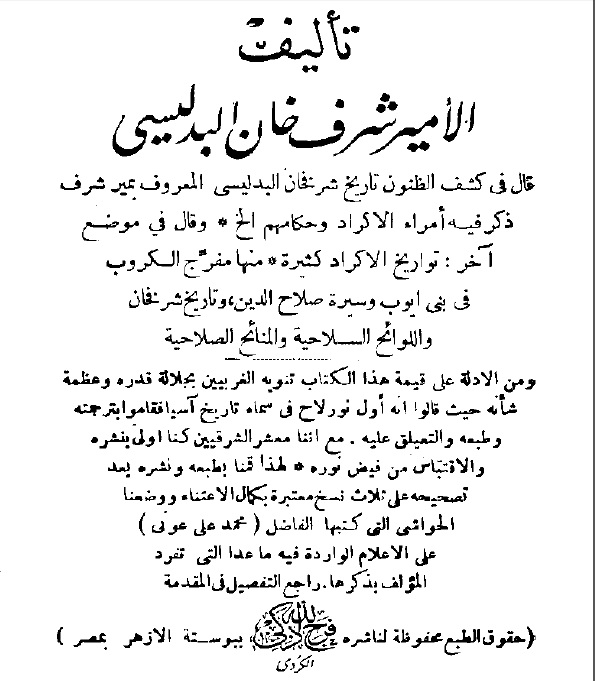 تأليف
الأمير شرف خان البدليسى
قال فى كشف الظنون تاريخ شرفخان البدليسى المعروف بمير شرف
ذكر فيه أمراء الاكراد وحكامهم الخ * وقال في موضع
آخر : تواريخ الاكراد كثيرة * منها مفرّج الكروب
فى بنى ايوب وسيرة صلاح الدين، وتاريخ شرفخان
واللوائح السلاحية والمنائح الصلاحية
ومن الادلة على قيمة هذا الكتاب تنويه الغربيين بجلالة قدره وعظمة
شأنه حيث قالوا انه أول نور لاح فى سماء تاريخ آسيا فقاموا بترجمته
وطبعه والتعيلق عليه . مع اننا معشر الشرقيين كنا اولى بنشره
والاقتباس من فيض نوره * لهذا قمنا بطبعه ونشره بعد
تصحيحه على ثلاث نسخ معتبرة بكمال الاعتناء ووضعنا
الحواشى التى كتبها الفاضل ( محمد على عونى )
على الاعلام الواردة فيه ما عدا التى تفرد
المؤلف بذكرها . راجع التفصيل فى المقدمة
(حقوق الطبع محفوظة لناشره فرج الله زكى ببوستة الازهر بمصر )
الكردى